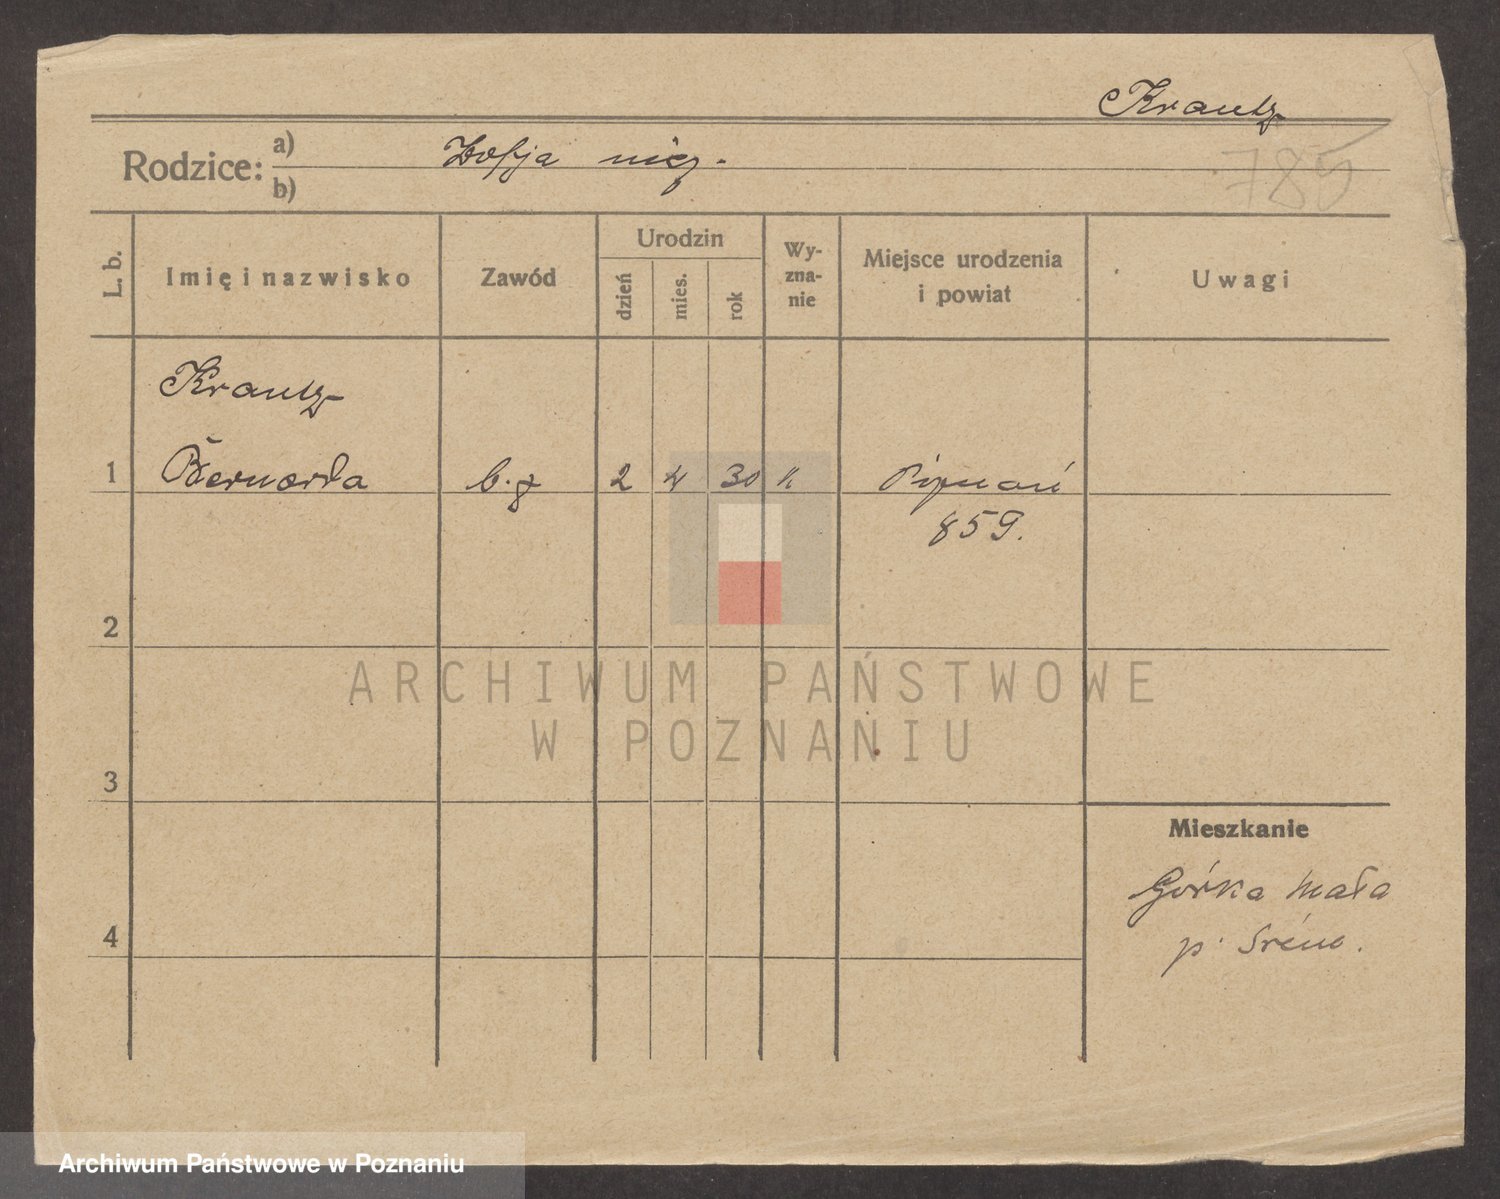 Krantz
Rodzice: a) Zofja niez.
b)
785
L. b.
Imię i nazwisko
Zawód
Urodzin
dzień
mies.
rok
Wy-
zna-
nie
Miejsce urodzenia
i powiat
Uwagi
Krantz
1 Bernarda b. z 2 4 30 k Poznań
859.
2
3
4
Mieszkanie
Górka mała
p. Śrem.
ARCHIWUM PAŃSTWOWE
W POZNANIU
Archiwum Państwowe w Poznaniu